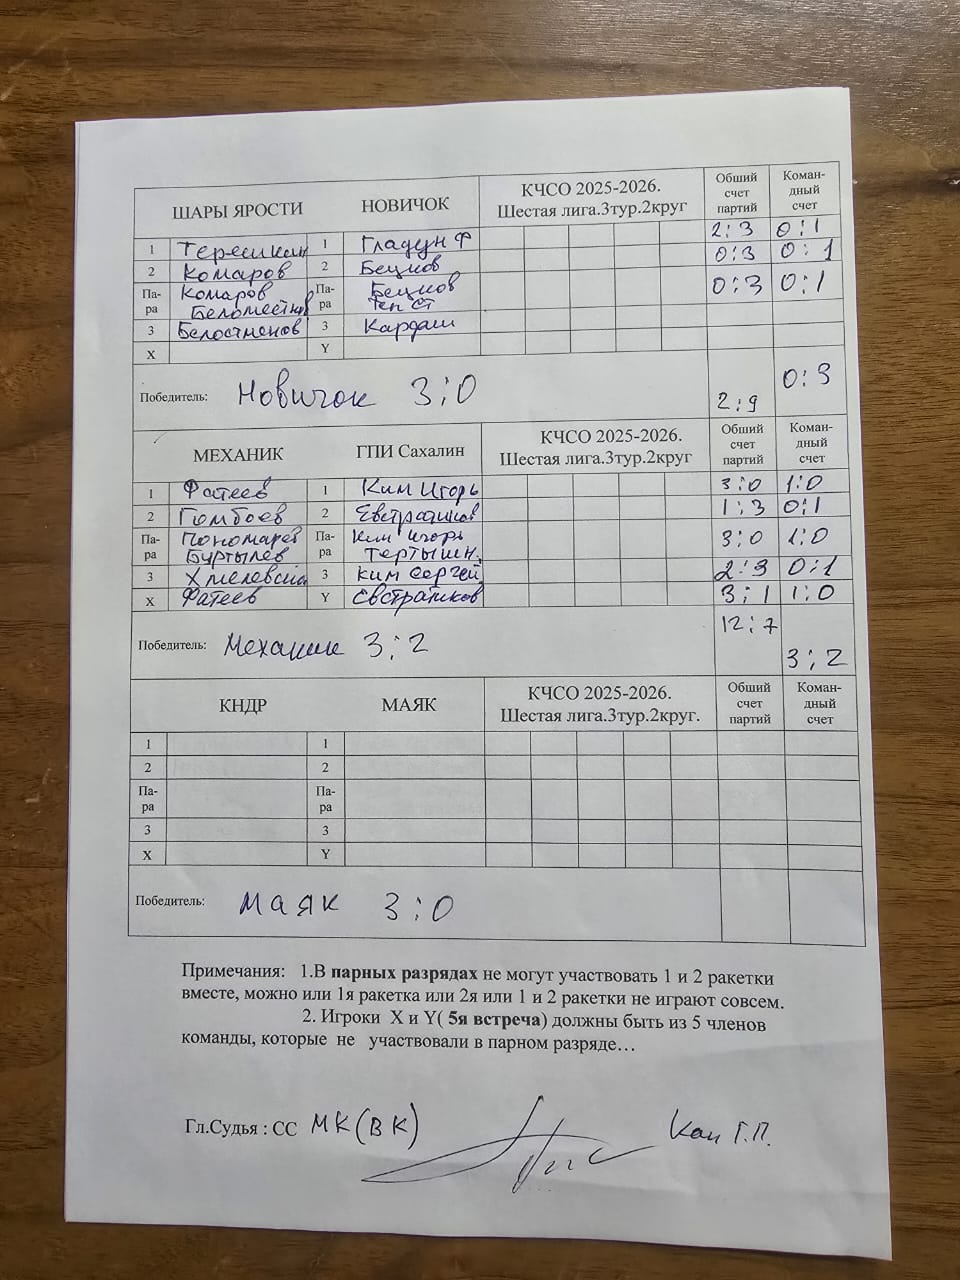 ШАРЫ ЯРОСТИ НОВИЧОК КЧСО 2025-2026. Шестая лига.3тур.2круг Общий счет партий Коман-дный счет
1 Терешкин 1 Гладун Ф 2:3 0:1
2 Комаров 2 Бецков 0:3 0:1
Па-ра Комаров Па-ра Бецков 0:3 0:1
Тен Ст
3 3 Кардаш
X Y
Победитель: Новичок 3:0 2:9 0:3
МЕХАНИК ГПИ Сахалин КЧСО 2025-2026. Шестая лига.3тур.2круг Общий счет партий Коман-дный счет
1 Фатеев 1 Ким Игорь 3:0 1:0
2 Гомбоев 2 Евстратиков 1:3 0:1
Па-ра Пономарев Па-ра Ким Игорь 3:0 1:0
Буртылев Тертышн.
3 3 Ким Сергей 2:3 0:1
X Фатеев Y Евстратиков 3:1 1:0
Победитель: Механик 3:2 12:7 3:2
КНДР МАЯК КЧСО 2025-2026. Шестая лига.3тур.2круг. Общий счет партий Коман-дный счет
1 1
2 2
Па-ра Па-ра
3 3
X Y
Победитель: Маяк 3:0
Примечания: 1.В парных разрядах не могут участвовать 1 и 2 ракетки
вместе, можно или 1я ракетка или 2я или 1 и 2 ракетки не играют совсем.
2. Игроки X и Y( 5я встреча) должны быть из 5 членов
команды, которые не участвовали в парном разряде…
Гл.Судья : СС МК(ВК) Кан Г.П.